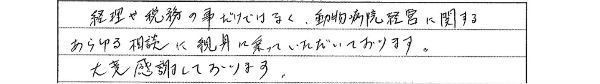 経理や税務の事だけではなく、動物病院経営に関する
あらゆる相談に親身に乗っていただいております。
大変感謝しております。